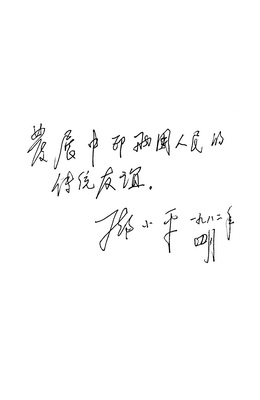 发展中印两国人民的
传统友谊。
邓小平 一九八二年
四月